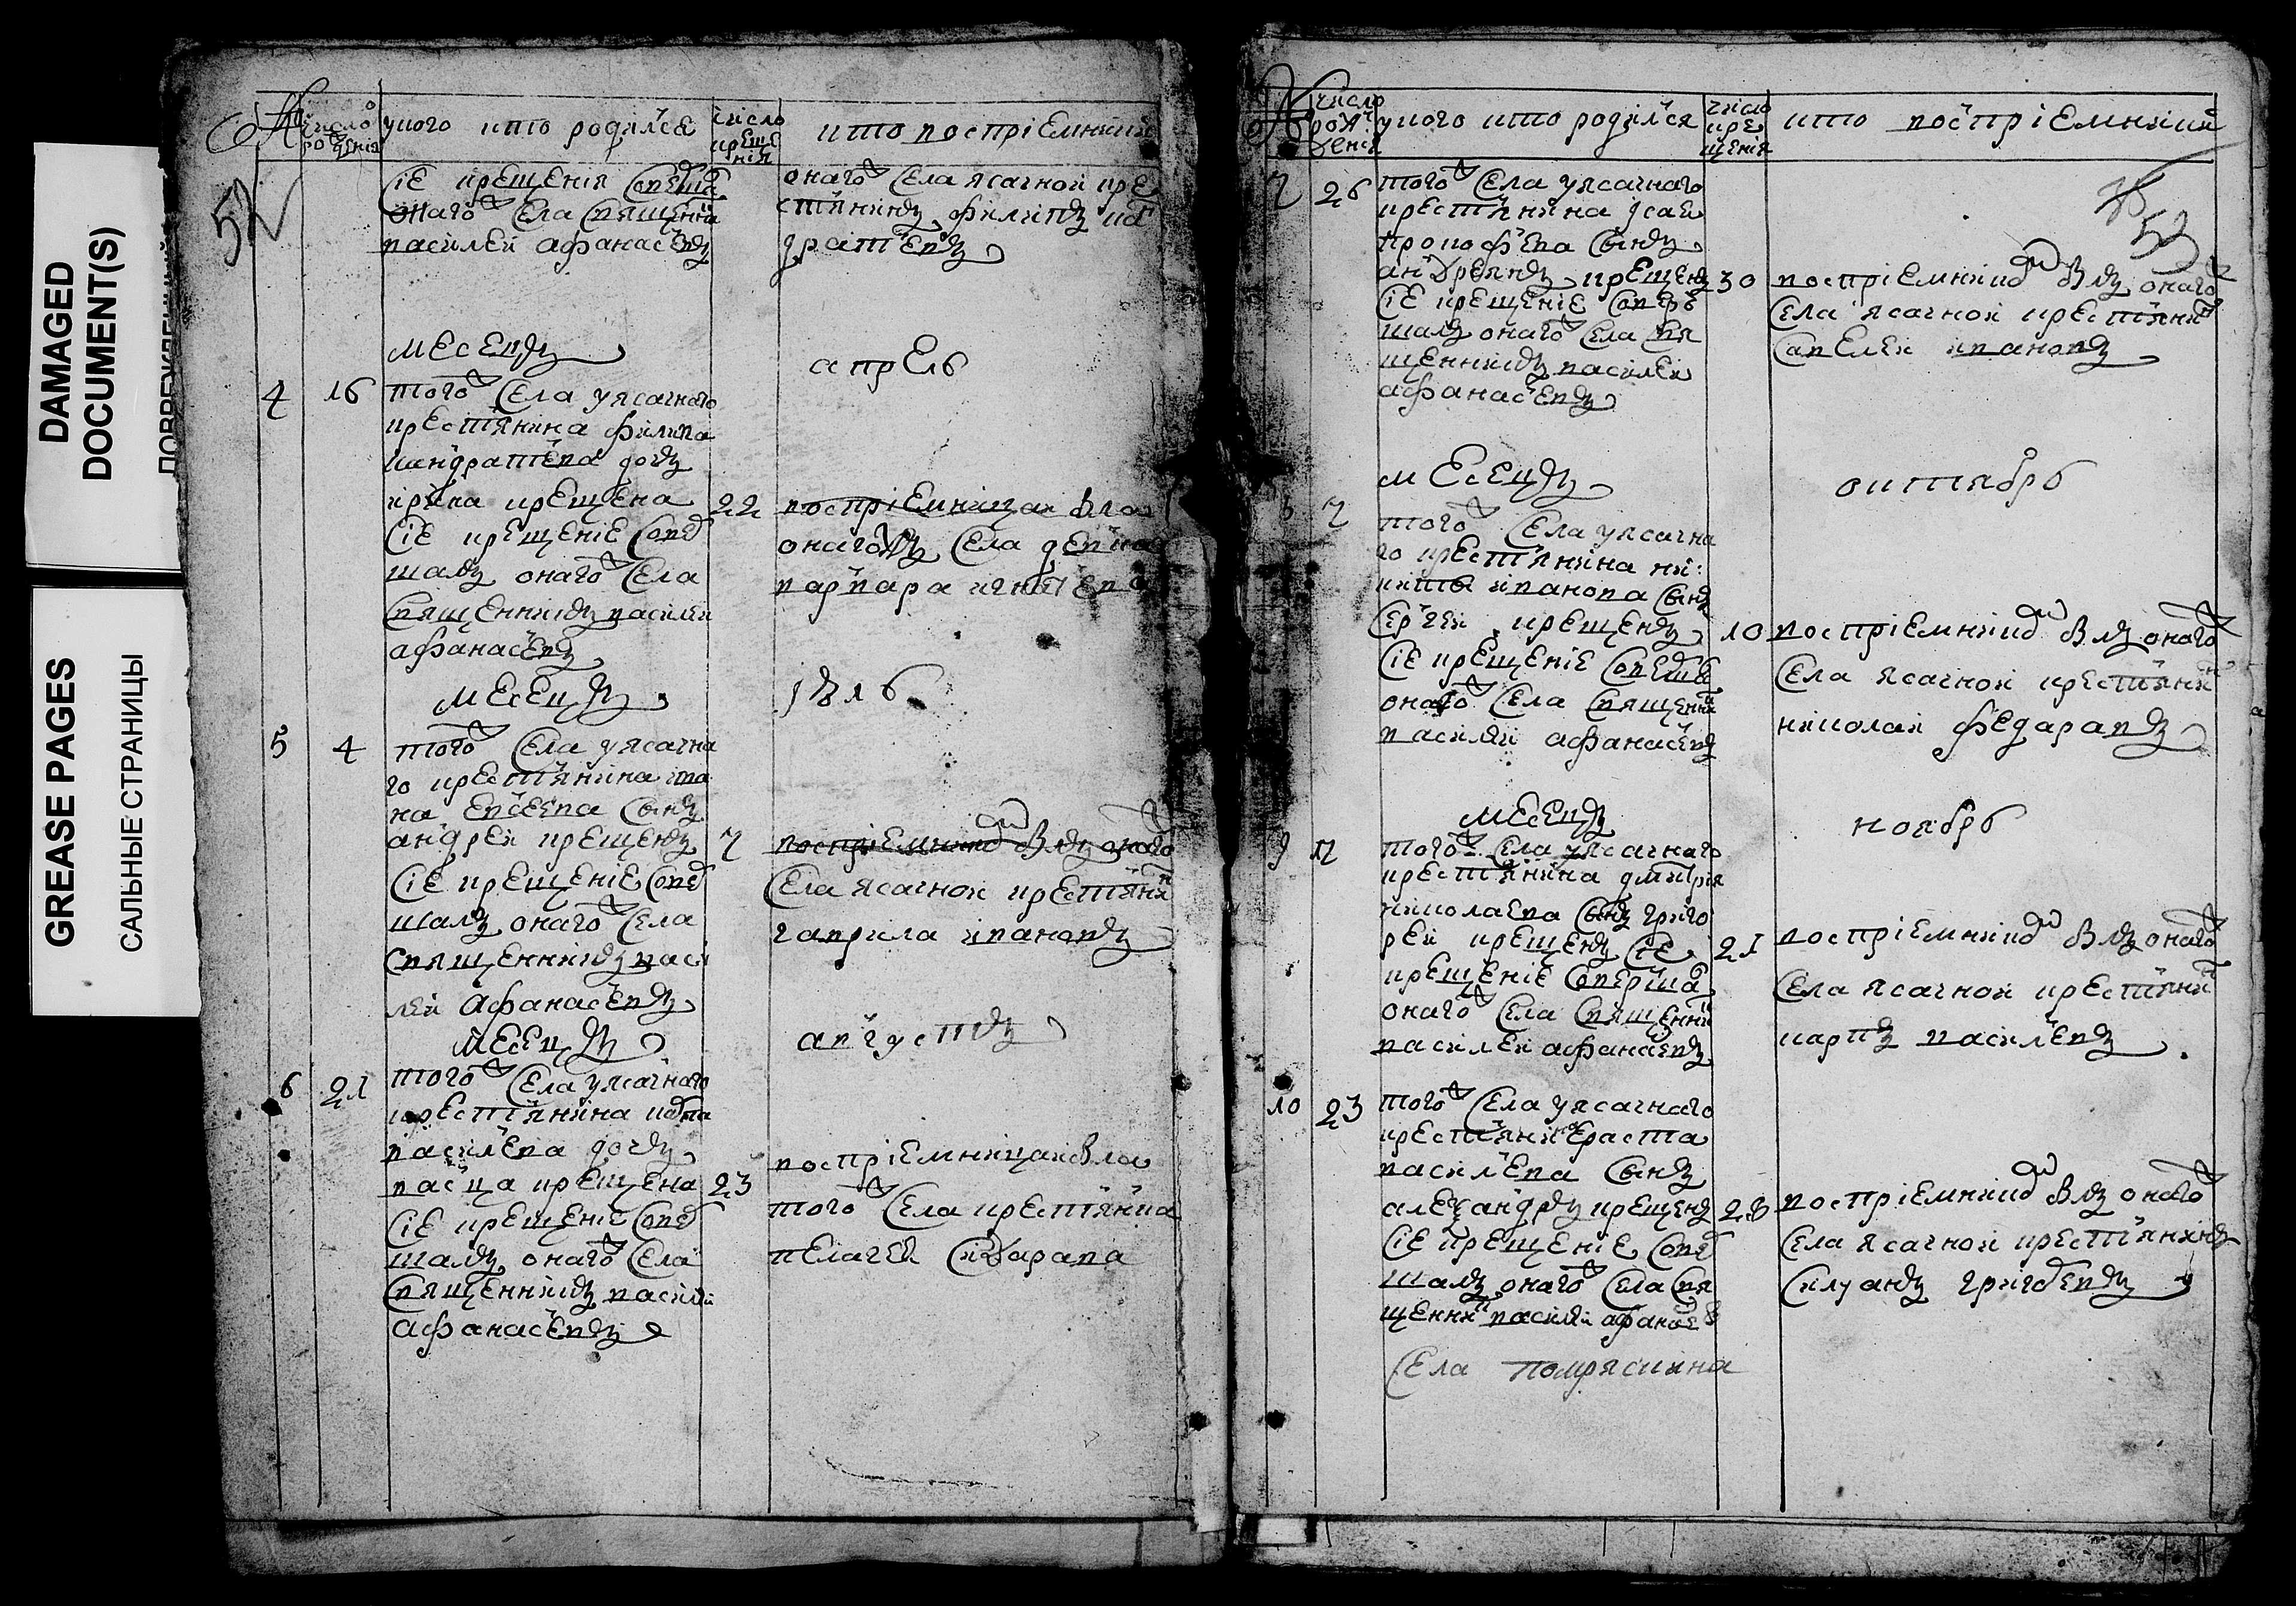 DAMAGED
DOCUMENT(S)
GREASE PAGES
САЛЬНЫЕ СТРАНИЦЫ
52
число рожденія
у кого кто родился
число крещенія
кто воспріемники
сіе крещения соверша
онаго села священни
василей афанасьевъ
онаго села ясачной кре
стьянинъ филипъ
месецъ
апрель
4 16 того села у ясачнаго
крестьянина филипа
кандратьева дочь
ирина крещена 22
сіе крещеніе совер
шалъ онаго села
священникъ василей
афанасьевъ
воспріемницаи была
онагожъ села девка
варвара игнатьева
месецъ
июль
5 4 того села у ясачна
го крестьянина ива
на евсеева сынъ
андрей крещенъ 7
сіе крещеніе совер
шалъ онаго села
священникъ васи
лей афанасьевъ
воспріемникомъ былъ онаго
села ясачной крестьянин
гаврила ивановъ
месецъ
августъ
6 21 того села у ясачнаго
крестьянина
василева дочь
крещена 23
сіе крещеніе совер
шалъ онаго села
священникъ василей
афанасьевъ
воспріемницаи была
того села крестьянка
пелагеи
53
число рожденія
у кого кто родился
число крещенія
кто воспріемники
7 26 того села у ясачнаго
крестьянина исаи
прокофьева сынъ
андреянъ крещенъ 30
сіе крещеніе совер
шалъ онаго села свя
щенникъ василей
афанасьевъ
воспріемникомъ былъ онаго
села ясачной крестьянин
савелей ивановъ
месецъ
октябрь
7 того села у ясачна
го крестьянина ни
киты иванова сынъ
сергеи крещенъ 10
сіе крещеніе соверша
онаго села священни
василей афанасьевъ
воспріемникомъ былъ онаго
села ясачной крестьянин
николаи федаравъ
месецъ
ноябрь
9 17 того села у ясачнаго
крестьянина дмитрія
николаева сынъ григо
реи крещенъ сіе 21
крещеніе соверша
онаго села священни
василеи афанасьевъ
воспріемникомъ былъ онаго
села ясачной крестьянин
карпъ василевъ
10 23 того села у ясачнаго
крестьянина ераста
василева сынъ
александръ крещенъ 28
сіе крещеніе совер
шалъ онаго села свя
щенник василей афанасев
воспріемникомъ былъ онаго
села ясачной крестьянинъ
силуанъ григоревъ
села помряскина